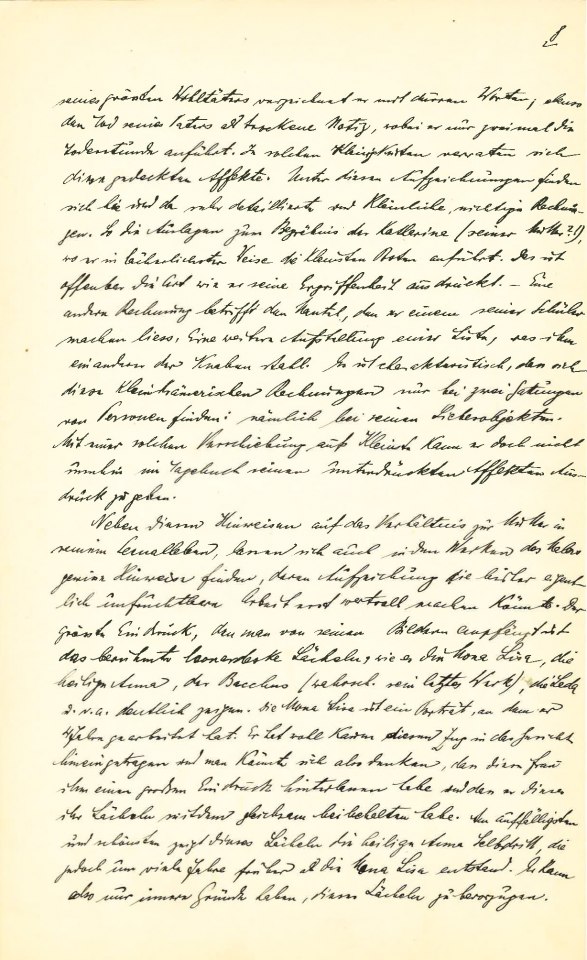 8
seines grössten Wohltäters verzeichnet er mit dürren Worten, ebenso
den Tod seines Vaters als trockene Notiz, wobei er nur zweimal die
Todesstunde anführt. In solchen Kleinigkeiten verraten sich
diese gedeckten Affekte. Unter diesen Aufzeichnungen finden
sich hie und da sehr detaillierte und kleinliche, nichtige Rechnun-
gen. So die Auslagen zum Begräbnis der Katherina (seiner Mutter?!),
wo er in lächerlichster Weise die kleinsten Posten anführt. Das ist
offenbar die Art wie er seine Ergriffenheit ausdrückt. – Eine
andere Rechnung betrifft den Mantel, den er einem seiner Schüler
machen liess. Eine weitere Aufstellung einer Liste, was ihm
ein anderer der Knaben stahl. Es ist charakteristisch, dass sich
diese kleinkrämerischen Rechnungen nur bei zwei Gattungen
von Personen finden: nämlich bei seinen Liebesobjekten.
Mit einer solchen Verschiebung aufs Kleinste kann er doch nicht
umhin im Tagebuch seinen unterdrückten Affekten Aus-
druck zu geben.
Neben diesen Hinweisen auf das Verhältnis zur Mutter in
seinem Sexualleben, lassen sich auch in den Werken des Malers
gewisse Hinweise finden, deren Aufzeichung die bisher eigent-
lich unfruchtbare Arbeit erst wertvoll machen könnte. Der
grösste Eindruck, den man von seinen Bildern empfängt ist
das berühmte leonardeske Lächeln, wie es die Mona Lisa, die
heilige Anna, der Bacchus (wahrsch. sein letztes Werk), die Leda
u. v. a. deutlich zeigen. Die Mona Lisa ist ein Porträt, an dem er
4 Jahre gearbeitet hat. Er hat wohl kaum diesen Zug in das Gesicht
hineingetragen und man könnte sich also denken, dass diese Frau
ihm einen grossen Eindruck hinterlassen habe und dass er dieses
ihr Lächeln seitdem gleichsam beibehalten habe. Am auffälligsten
und schönsten zeigt dieses Lächeln die heilige Anna Selbdritt, die
jedoch um viele Jahre früher als die Mona Lisa entstand. Es kann
also nur innere Gründe haben, dieses Lächeln zu bevorzugen.